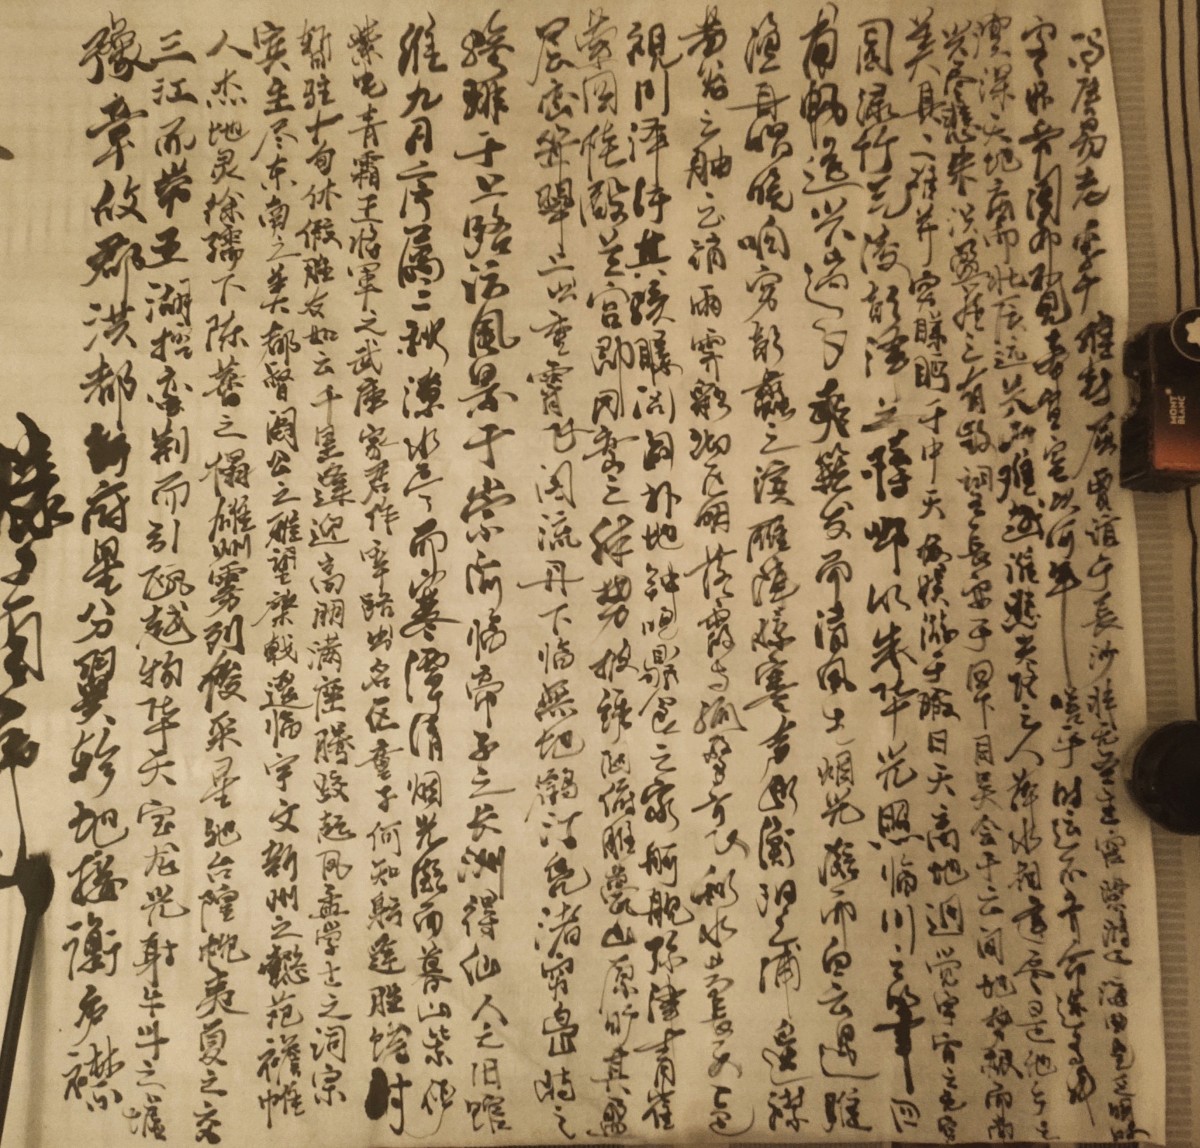 豫章故郡洪都新府星分翼轸地接衡庐襟
三江而带五湖控蛮荆而引瓯越物华天宝龙光射牛斗之墟
人杰地灵徐孺下陈蕃之榻雄州雾列俊采星驰台隍枕夷夏之交
宾主尽东南之美都督阎公之雅望棨戟遥临宇文新州之懿范襜帷
暂驻十旬休假胜友如云千里逢迎高朋满座腾蛟起凤孟学士之词宗
紫电青霜王将军之武库家君作宰路出名区童子何知躬逢胜饯时
维九月序属三秋潦水尽而寒潭清烟光凝而暮山紫俨
骖騑于上路访风景于崇阿临帝子之长洲得仙人之旧馆
层峦耸翠上出重霄飞阁流丹下临无地鹤汀凫渚穷岛屿之
萦回桂殿兰宫即冈峦之体势披绣闼俯雕甍山原旷其盈
视川泽纡其骇瞩闾阎扑地钟鸣鼎食之家舸舰弥津青雀
黄龙之舳云销雨霁彩彻区明落霞与孤鹜齐飞秋水共长天一色
渔舟唱晚响穷彭蠡之滨雁阵惊寒声断衡阳之浦遥襟
甫畅逸兴遄飞爽籁发而清风生烟光凝而白云遏睢
园绿竹气凌彭泽之樽邺水朱华光照临川之笔四
美具二难并穷睇眄于中天极娱游于暇日天高地迥觉宇宙之无穷
兴尽悲来识盈虚之有数望长安于日下目吴会于云间地势极而南
溟深天柱高而北辰远关山难越谁悲失路之人萍水相逢尽是他乡之
客怀帝阍而不见奉宣室以何年嗟乎时运不齐命途多舛
冯唐易老李广难封屈贾谊于长沙非无圣主窜梁鸿于海曲岂乏明时
MONT
BLANC